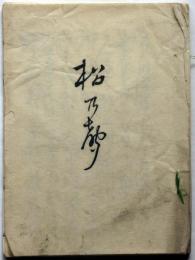 松乃聲